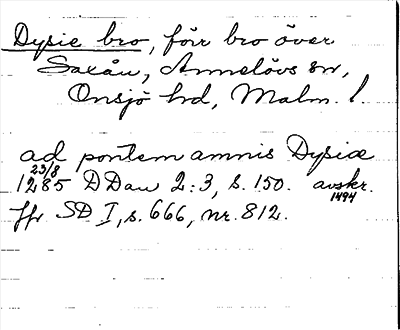 Dysie bro, förr bro över
Saxån, Annelövs sn,
Onsjö hd, Malm. l.
ad pontem amnis Dysiæ
23/8
1285 DDan 2:3, s. 150. avskr.
1494
Jfr SD I, s. 666, nr. 812.